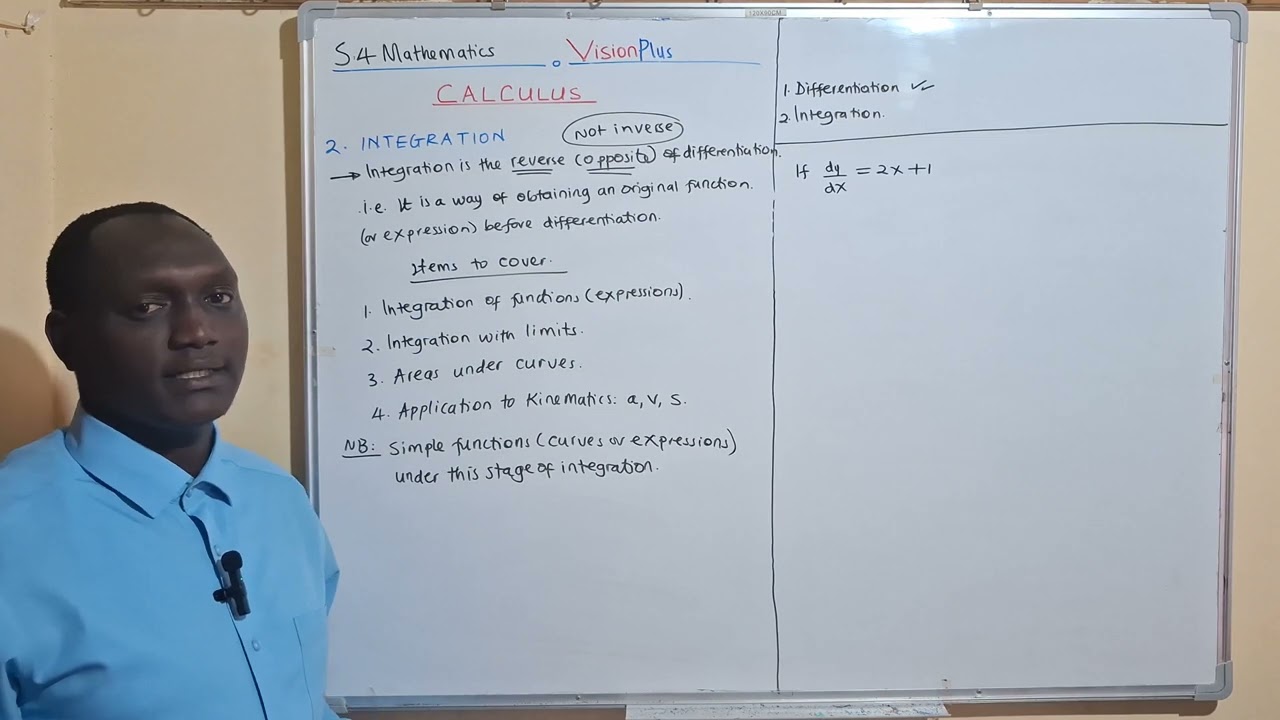 120X90CM
S.4 Mathematics VisionPlus
CALCULUS
2. INTEGRATION
Not inverse
→ Integration is the reverse (opposite) of differentiation.
i.e. It is a way of obtaining an original function.
(or expression) before differentiation.
Items to cover.
1. Integration of functions (expressions).
2. Integration with limits.
3. Areas under curves.
4. Application to Kinematics: a, v, s.
NB: Simple functions (curves or expressions)
under this stage of integration.
1. Differentiation ✓
2. Integration.
If dy/dx = 2x+1